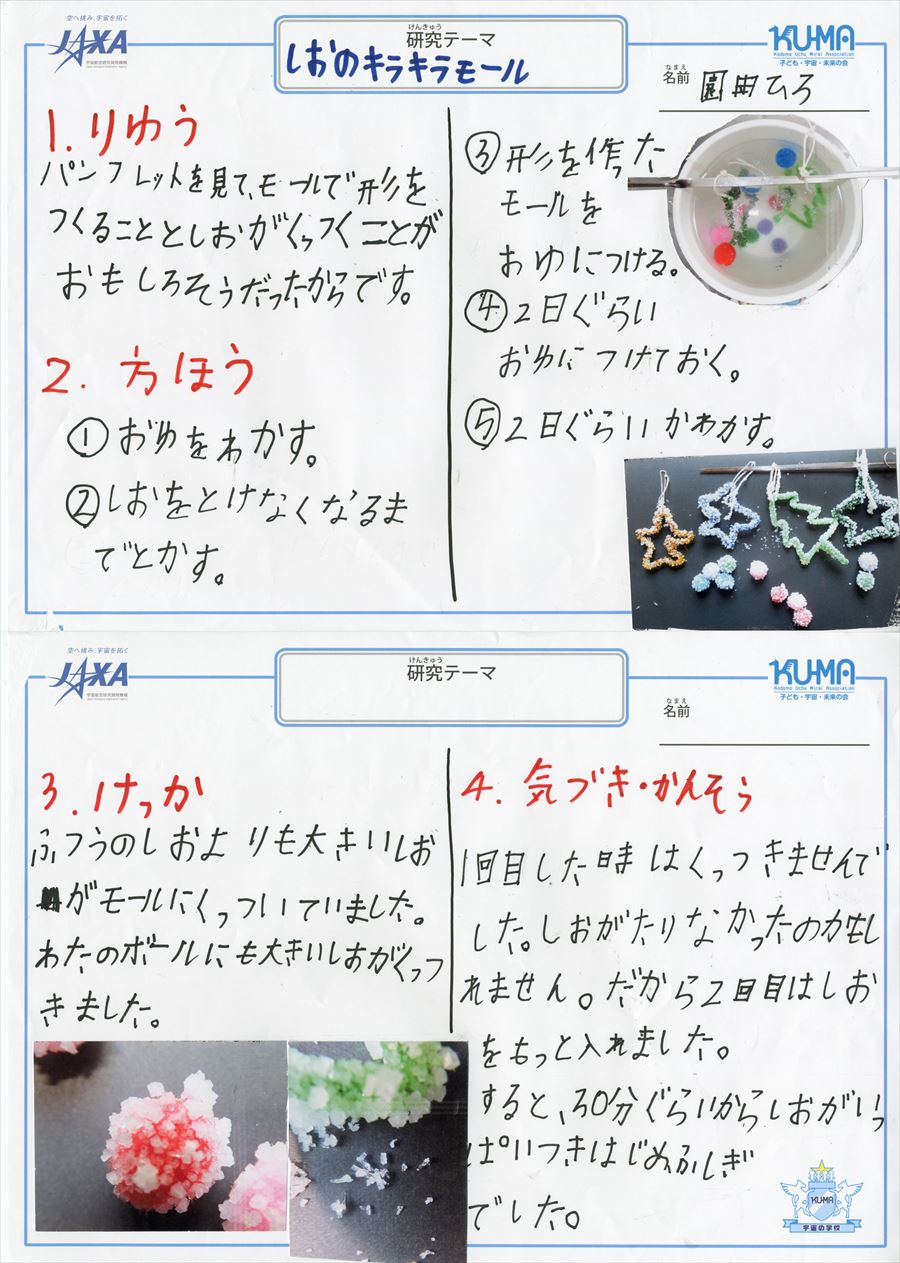 空へ挑み、宇宙を拓く
JAXA
宇宙航空研究開発機構
けんきゅう
研究テーマ
しおのキラキラモール
KUMA
Kodomo Uchu Mirai Association
子ども・宇宙・未来の会
なまえ
名前
園田ひろ
1.りゆう
パンフレットを見て、モールで形を
つくることとしおがくっつくことが
おもしろそうだったからです。
2.方ほう
①おゆをわかす。
②しおをとけなくなるま
でとかす。
③形を作った
モールを
おゆにつける。
④2日ぐらい
おゆにつけておく。
⑤2日ぐらいかわかす。
空へ挑み、宇宙を拓く
JAXA
宇宙航空研究開発機構
けんきゅう
研究テーマ
KUMA
Kodomo Uchu Mirai Association
子ども・宇宙・未来の会
なまえ
名前
3.けっか
ふつうのしおよりも大きいしお
がモールにくっついていました。
わたのボールにも大きいしおがくっつ
きました。
4.気づき・かんそう
1回目した時はくっつきませんで
した。しおがたりなかったのかもし
れません。だから2回目はしお
をもっと入れました。
すると、30分ぐらいからしおがいっ
ぱいつきはじめふしぎ
でした。
KUMA
宇宙の学校